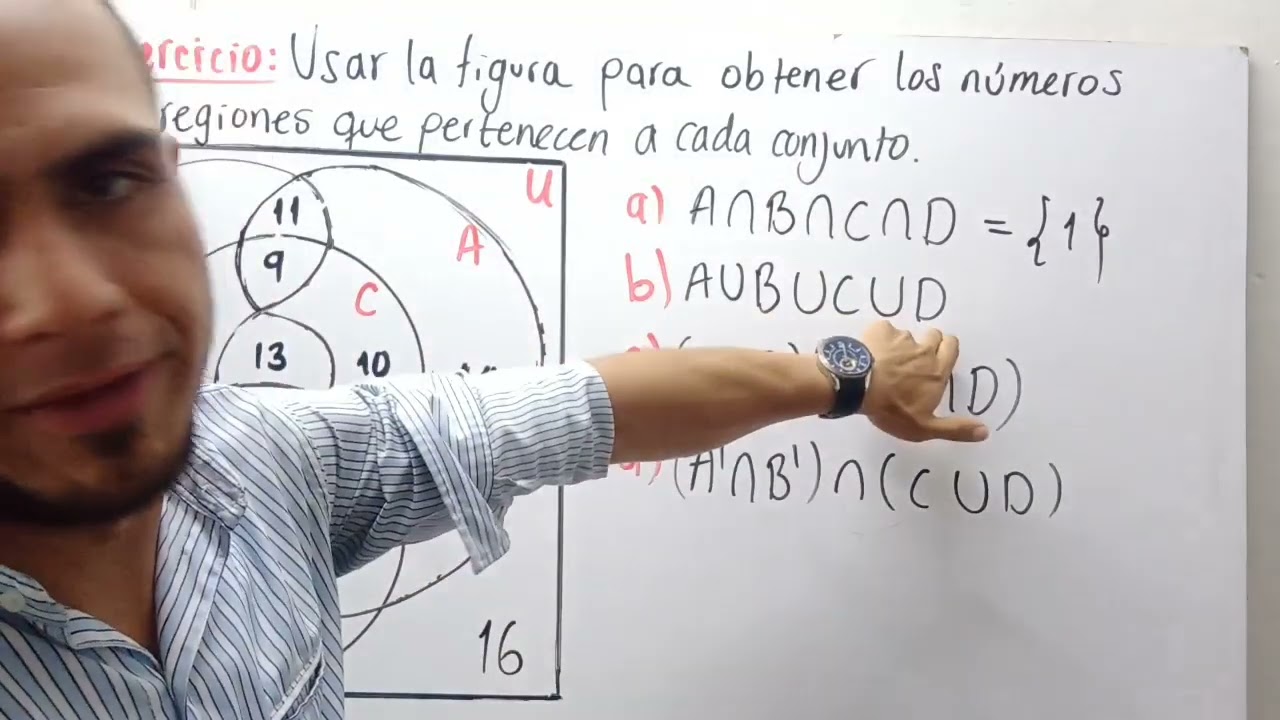 ercicio: Usar la figura para obtener los números
regiones que pertenecen a cada conjunto.
U
a) A∩B∩C∩D = {1}
11
A
9
b) A∪B∪C∪D
C
13
10
D)
(A'∩B')∩(C∪D)
16